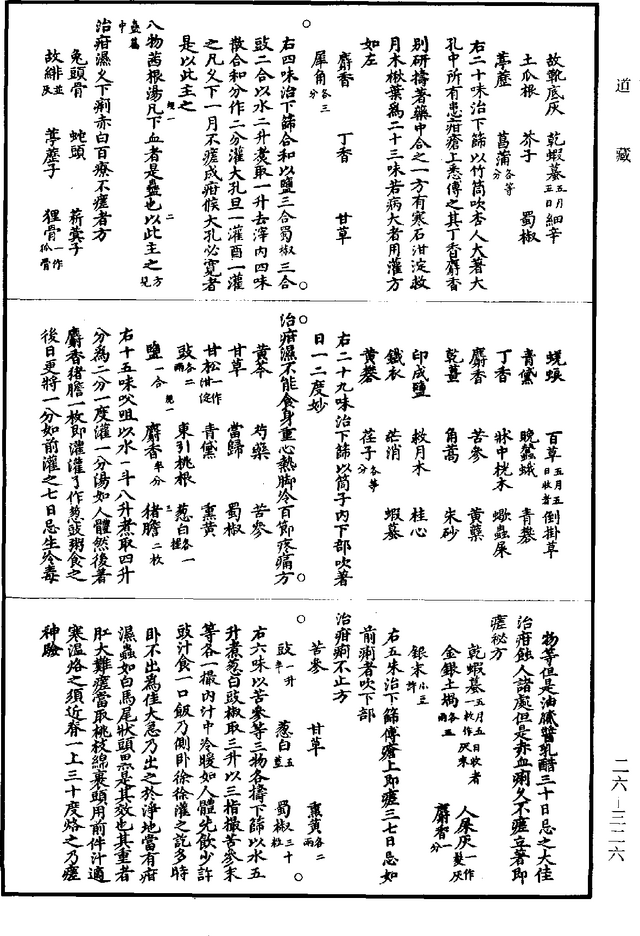 道藏
故靴底灰　乾蝦蟇五月五日　細辛
土瓜根　芥子　蜀椒
葶藶　菖蒲各等分
右二十味治下篩以竹筒吹杏人大著大
孔中所有患疳瘡上悉傅之其丁香麝香
別研擣著藥中合之一方有寒石泔淀救
月木楸葉為二十三味若病大者用灌方
如左
麝香　丁香　甘草
犀角各三分
右四味治下篩合和以鹽三合蜀椒三合
豉二合以水二升煑取一升去滓內四味
散合和分作二分灌大孔旦一灌酉一灌
之凡久下一月不瘥成疳候大孔必寬者
是以此主之
八物茜根湯凡下血者是蠱也以此主之方見
蠱篇中
治疳濕久下痢赤白百療不瘥者方
兔頭骨　蛇頭　蘄糞子
故緋並灰　葶藶子　狸骨一作狐骨
蜣蜋　百草五月五日收者　倒掛草
青黛　晚蠶蛾　青礬
丁香　牀中桄木　蠍蟲屎
麝香　苦參　黃蘗
乾薑　角蒿　朱砂
印成鹽　救月木　桂心
鐵衣　芒消　蝦蟇
黃礬　荏子各等分
右二十九味治下篩以筒子內下部吹著
日一二度妙
治疳濕不能食身重心熱脚冷百節疼痛方
黃芩　芍藥　苦參
甘草　當歸　蜀椒
甘松一作泔淀　青黛　熏黃
豉各二兩　東引桃根　葱白各一握
鹽一合　麝香半分　猪膽二枚
右十五味㕮咀以水一斗八升煮取四升
分為二分一度灌一分湯如人體然後著
麝香猪膽一枚即灌灌了作葱豉粥食之
後日更將一分如前灌之七日忌生冷毒
物等但是油膩醬乳醋三十日忌之大佳
治疳蝕人諸處但是赤血痢久不瘥立著即
瘥秘方
乾蝦蟇一枚五月五日收者作灰末　人屎灰一作髮灰
金銀土堝各五兩　麝香一分
銀末小豆許
右五味治下篩傅瘡上即瘥三七日忌如
前痢者吹下部
治疳痢不止方
苦參　甘草　熏黃各二兩
豉一升半　葱白五莖　蜀椒三十粒
右六味以苦參等三物各擣下篩以水五
升煮葱白豉椒取三升以三指撮苦參末
等各一撮內汁中冷暖如人體先飲少許
豉汁食一口飯乃側卧徐徐灌之訖多時
卧不出為佳大急乃出之於淨地當有疳
濕蟲如白馬尾狀頭黑是其效也其重者
肛大難瘥當取桃枝綿裹頭用前件汁適
寒溫烙之須近脊一上三十度烙之乃瘥
神驗
二六─三二六